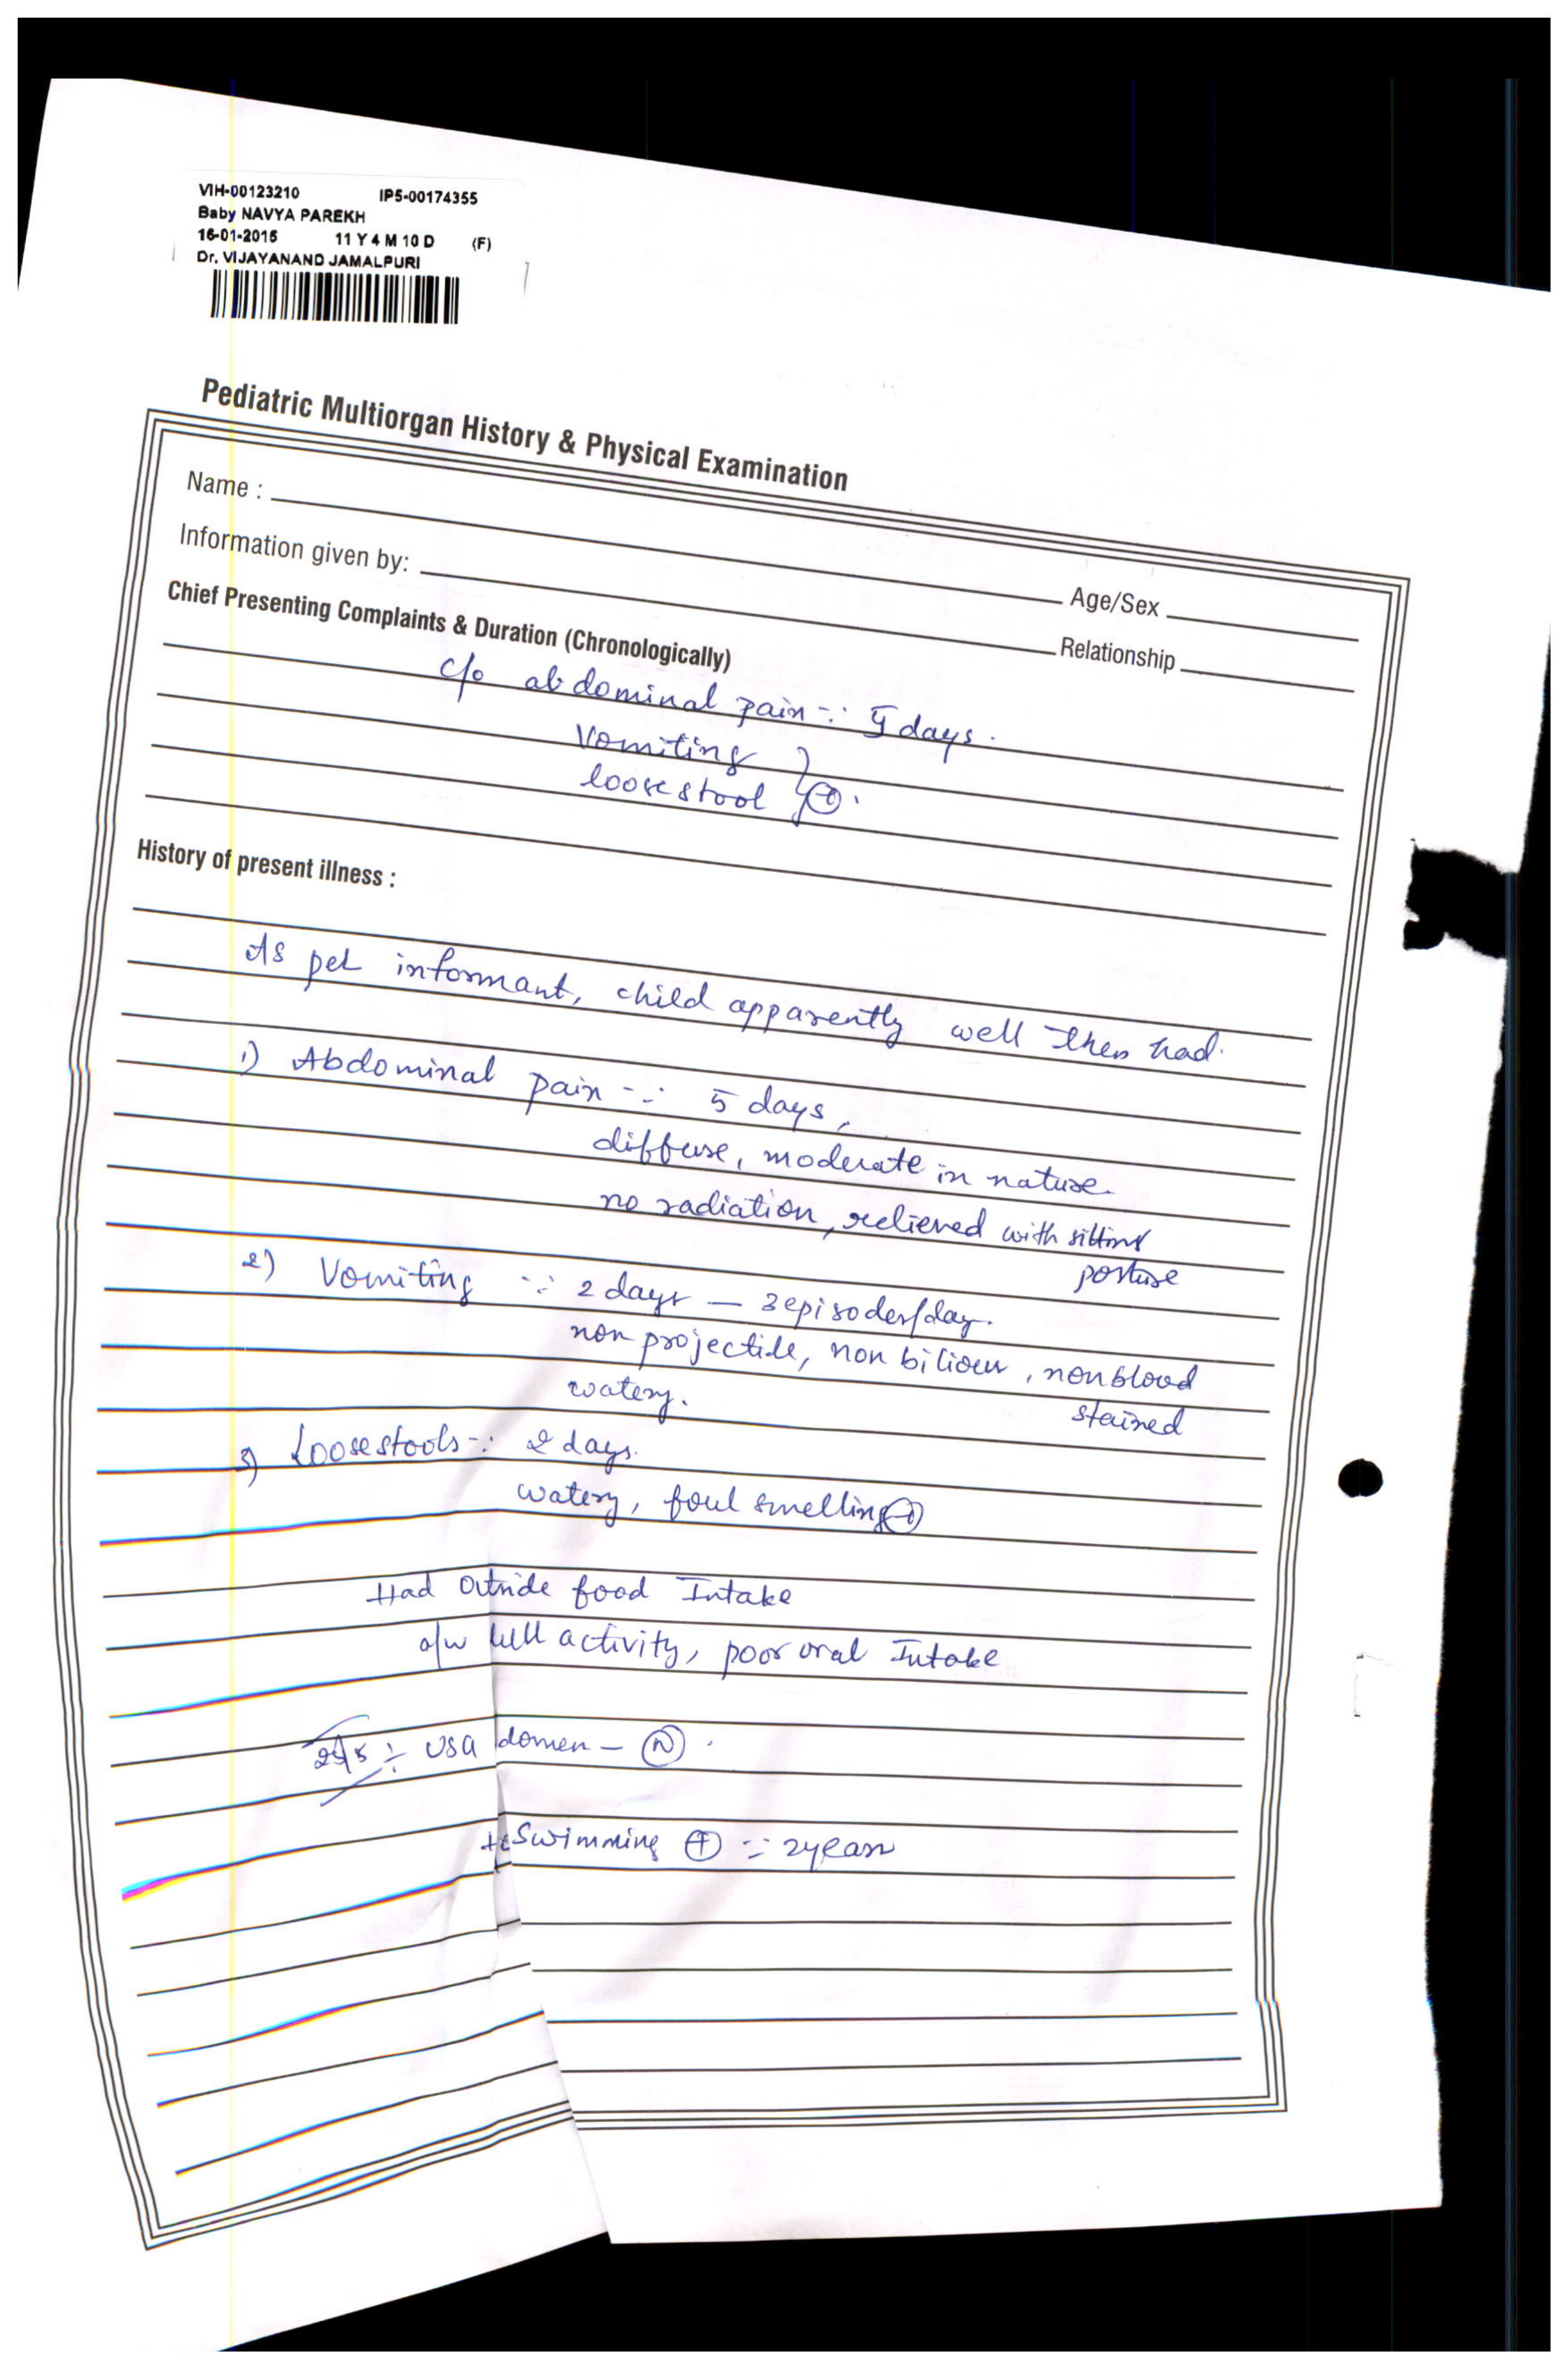 VIH-00123210 IP5-00174355
Baby NAVYA PAREKH
16-01-2015 11 Y 4 M 10 D (F)
Dr. VIJAYANAND JAMALPURI
Pediatric Multiorgan History & Physical Examination
Name : Age/Sex
Information given by: Relationship
Chief Presenting Complaints & Duration (Chronologically)
c/o abdominal pain ∵ 5 days.
Vomiting
loose stool ⊕.
History of present illness :
As per informant, child apparently well then had.
1) Abdominal pain -∵ 5 days,
diffuse, moderate in nature.
no radiation, relieved with sitting
posture
2) Vomiting ∵ 2 days – 3 episodes/day.
non projectile, non bilious, non blood
stained
watery.
3) Loosestools -∵ 2 days.
watery, foul smelling ⊕
Had outside food Intake
a/w dull activity, poor oral Intake
USG domen – Ⓝ .
Swimming ⊕ ∵ 2 years